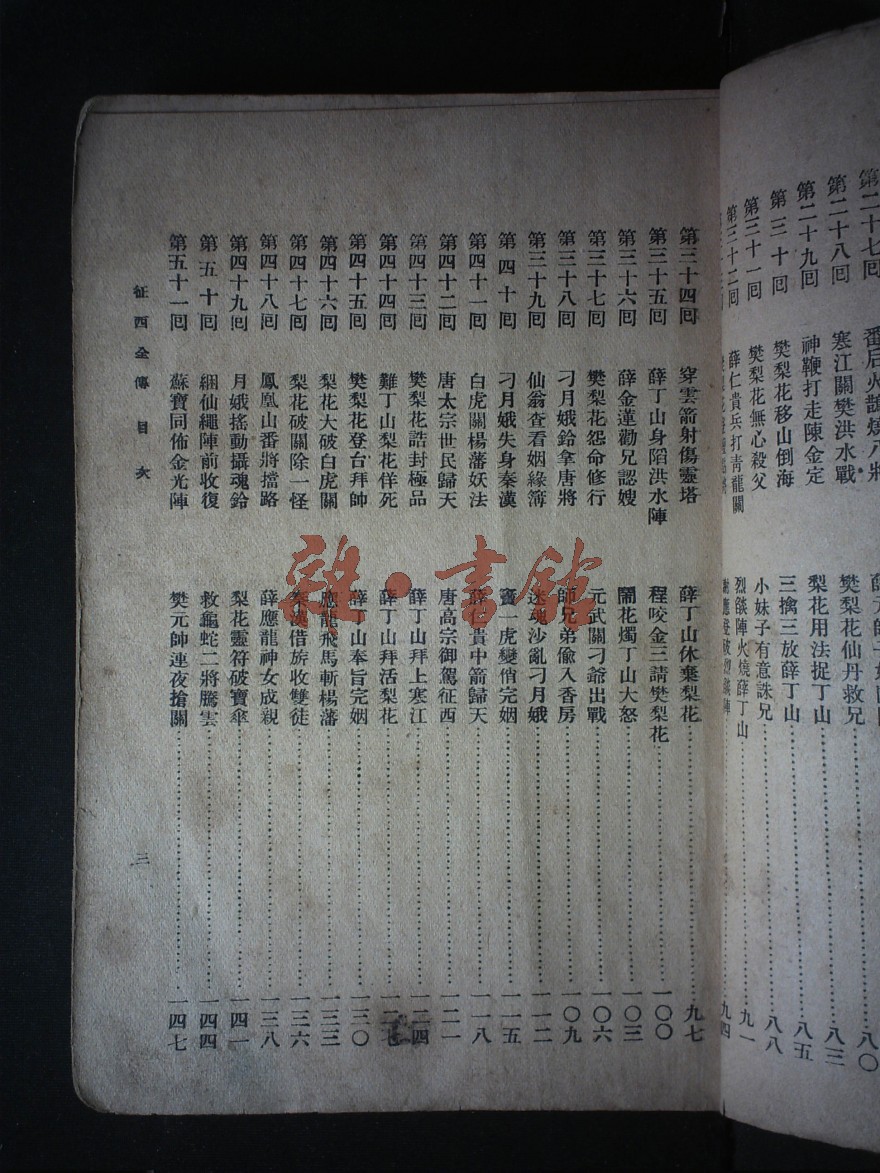 第二十七回 番后火鵲燒八將 八〇
第二十八回 寒江關樊洪水戰 樊梨花仙丹救兄 八三
第二十九回 神鞭打走陳金定 梨花用法捉丁山 八五
第三十回 樊梨花移山倒海 三擒三放薛丁山 八八
第三十一回 樊梨花無心殺父 小妹子有意誅兄 九一
第三十二回 薛仁貴兵打青龍關 烈燄陣火燒薛丁山 九四
第三十四回 穿雲箭射傷靈塔 薛丁山休棄梨花 九七
第三十五回 薛丁山身陷洪水陣 程咬金三請樊梨花 一〇〇
第三十六回 薛金蓮勸兄認嫂 鬧花燭丁山大怒 一〇三
第三十七回 樊梨花怨命修行 元武關刁爺出戰 一〇六
第三十八回 刁月娥鈴拿唐將 師兄弟偸入香房 一〇九
第三十九回 仙翁查看姻緣簿 迷魂沙亂刁月娥 一一二
第四十回 刁月娥失身秦漢 竇一虎變俏完姻 一一五
第四十一回 白虎關楊藩妖法 薛仁貴中箭歸天 一一八
第四十二回 唐太宗世民歸天 唐高宗御駕征西 一二一
第四十三回 樊梨花誥封極品 薛丁山拜上寒江 一二四
第四十四回 難丁山梨花佯死 薛丁山拜活梨花 一二七
第四十五回 樊梨花登台拜帥 薛丁山奉旨完姻 一三〇
第四十六回 梨花大破白虎關 應龍飛馬斬楊藩 一三三
第四十七回 梨花破關除一怪 秦漢借旂收雙徒 一三六
第四十八回 鳳凰山番將擋路 薛應龍神女成親 一三八
第四十九回 月娥搖動攝魂鈴 梨花靈符破寶傘 一四一
第五十回 綑仙繩陣前收復 救龜蛇二將騰雲 一四四
第五十一回 蘇寶同佈金光陣 樊元帥連夜搶關 一四七
征西全傳 目次 三